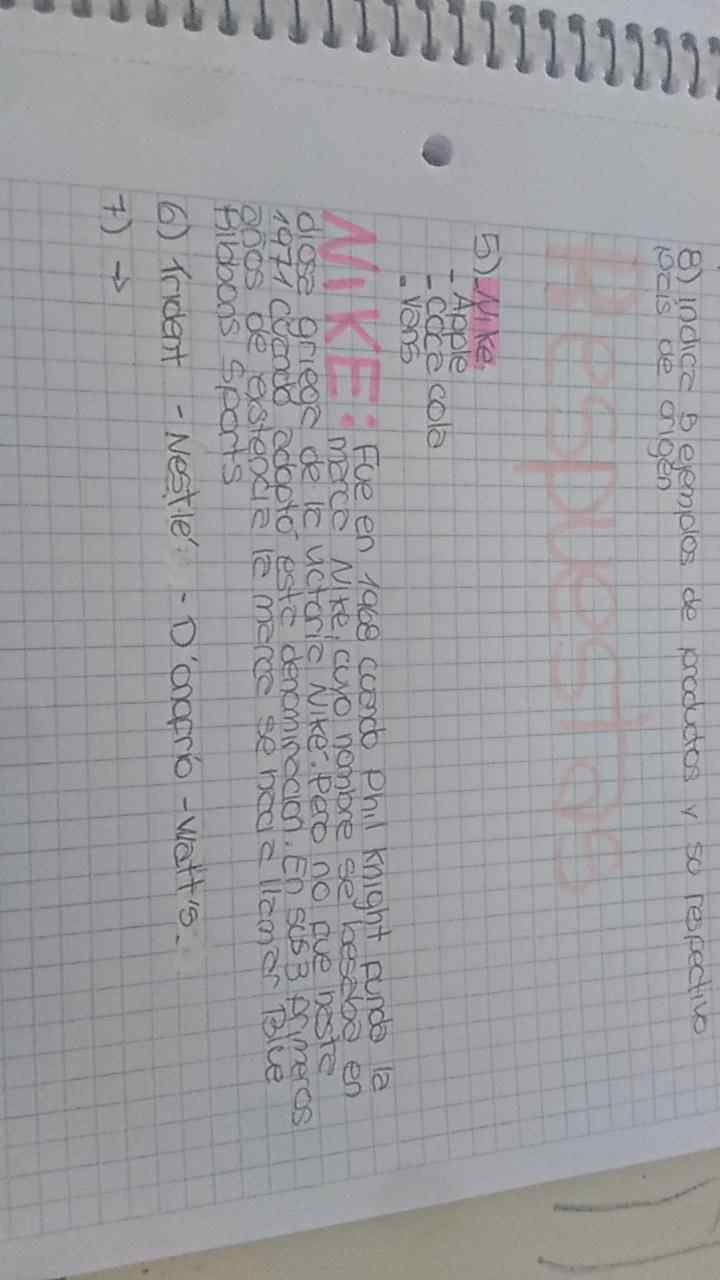 8) Indica 5 ejemplos de productos y su respectivo
pais de origen
Respuestas
5) Nike
- Apple
- coca cola
- vans
NIKE: Fue en 1968 cuando Phil Knight fundo la
marca Nike, cuyo nombre se basaba en
diosa griega de la victoria Nike. Pero no fue hasta
1971 cuando adopto esta denominacion. En sus 3 primeros
años de existencia la marca se hacia llamar Blue
Ribbons Sports
6) Trident - Nestlé - D'onofrio - Watt's.
7) →